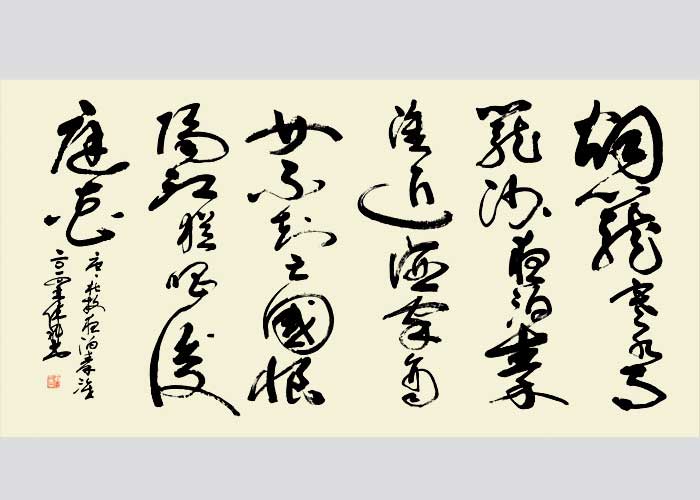 烟籠寒水月
籠沙夜泊秦
淮近酒家商
女不知亡國恨
隔江猶唱後
庭花
唐杜牧夜泊秦淮